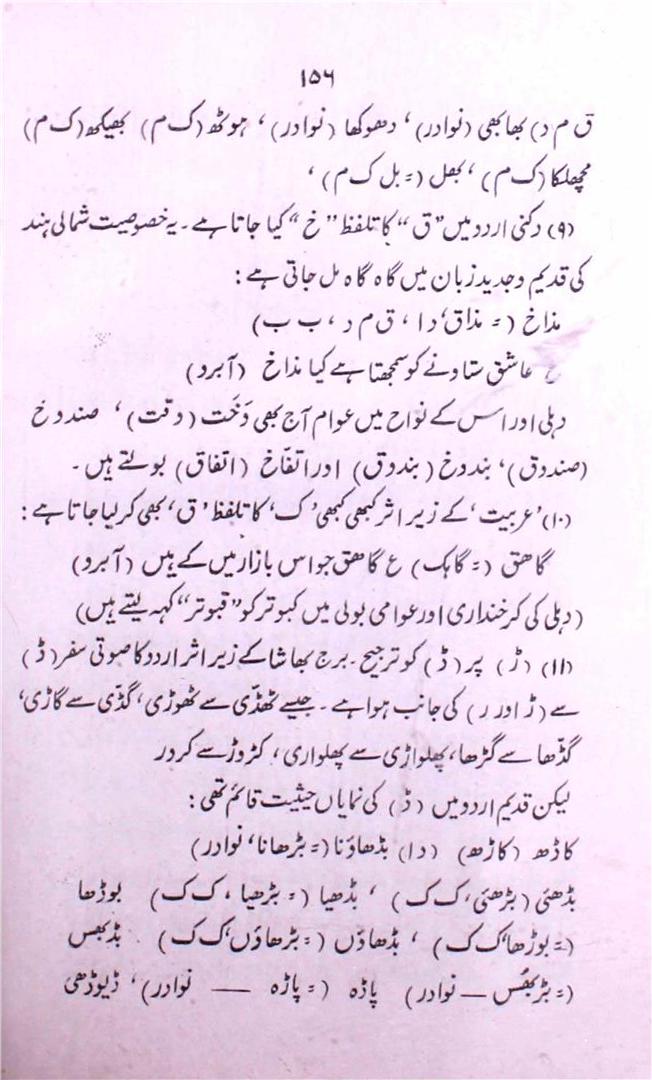 ۱۵۶
ق م د) بھابھی (نوادر)، دھوکھا (نوادر)، ہوٹھ (ک م) بھیکھ (ک م)
مچھلکا (ک م)، بھل (= بل ک م)،
(۹) دکنی اردو میں "ق" کا تلفظ "خ" کیا جاتا ہے۔ یہ خصوصیت شمالی ہند
کی قدیم و جدید زبان میں گاہ گاہ مل جاتی ہے:
مذاخ (= مذاق، د ا، ق م د، ب ب)
ع عاشق ستاونے کو سمجھتا ہے کیا مذاخ (آبرو)
دہلی اور اس کے نواح میں عوام آج بھی وَخت (وقت)، صندوخ
(صندوق)، بندوخ (بندوق) اور اتفّاخ (اتفاق) بولتے ہیں۔
(۱۰) 'عربیت' کے زیر اثر کبھی کبھی 'ک' کا تلفظ 'ق' بھی کر لیا جاتا ہے:
گاھق (= گاہک) ع گاھق جو اس بازار میں کے ہیں (آبرو)
(دہلی کی کرخنداری اور عوامی بولی میں کبوتر کو "قبوتر" کہہ لیتے ہیں)
(۱۱) (ڑ) پر (ڈ) کو ترجیح۔ برج بھاشا کے زیر اثر اردو کا صوتی سفر (ڈ)
سے (ڑ اور ر) کی جانب ہوا ہے۔ جیسے ٹھڈّی سے ٹھوڑی، گڈّی سے گاڑی،
گڈّھا سے گڑھا، پھلواڑی سے پھلواری، کڑوڑ سے کردر
لیکن قدیم اردو میں (ڈ) کی نمایاں حیثیت قائم تھی:
کاڈھ (کاڑھ) (د ا) بڈھاؤنا (= بڑھانا، نوادر)
بڈھئی (بڑھئی، ک ک)، بڈھیا (= بڑھیا، ک ک) بوڈھا
(= بوڑھا، ک ک)، بڈھاؤں (= بڑھاؤں، ک ک) بڈبھس
(= بڑبھُس — نوادر) پاڈہ (= پاڑہ — نوادر)، ڈیوڈھی